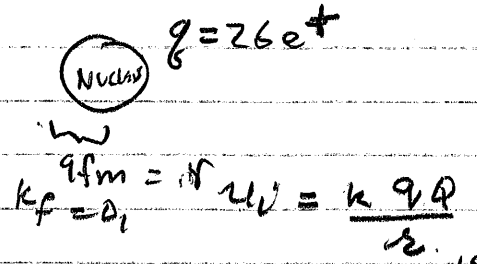 q = 26 e⁺
Nucleus
9fm = r
K_f = 0, U_i = k q Q / r.